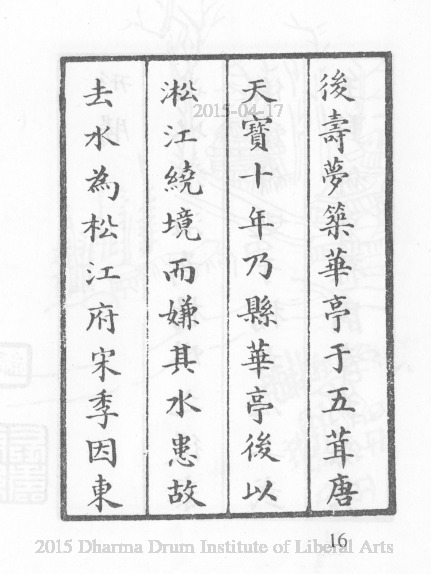 後壽夢築華亭于五茸唐
天寶十年乃縣華亭後以
淞江繞境而嫌其水患故
去水為松江府宋季因東
2015-04-17
16
2015 Dharma Drum Institute of Liberal Arts